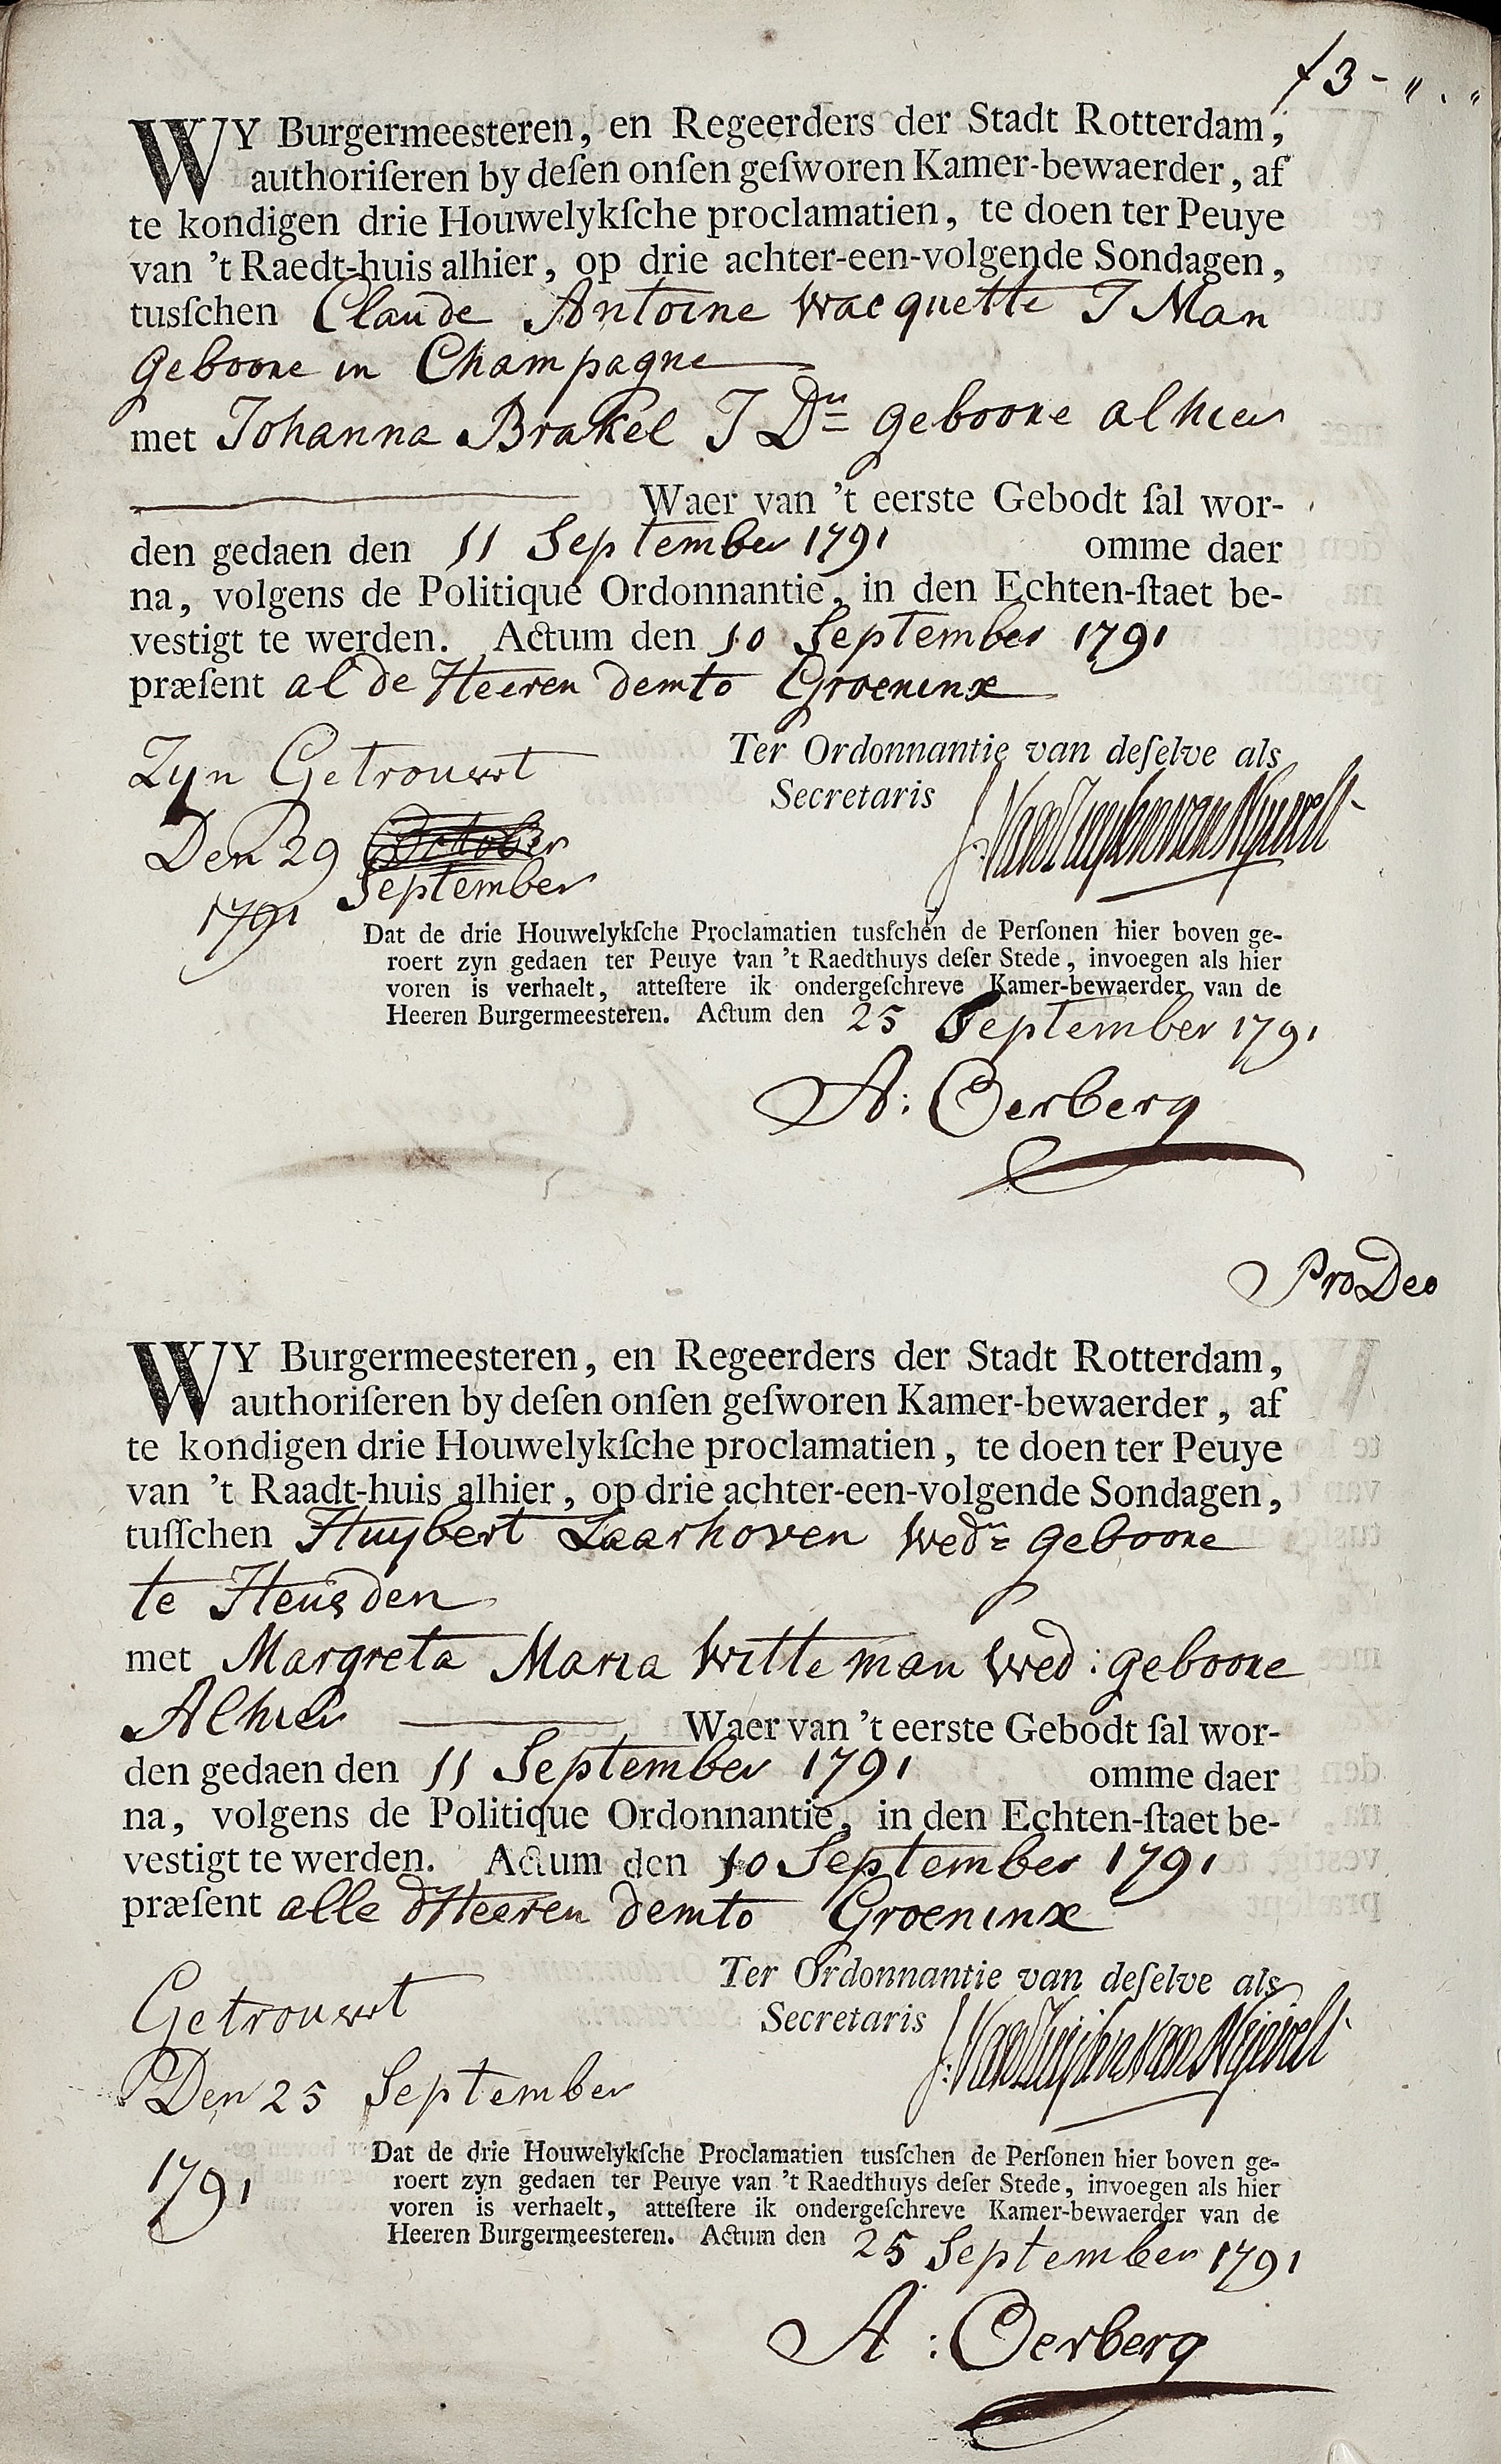 f 3 - " . "
WY Burgermeesteren, en Regeerders der Stadt Rotterdam,
authoriſeren by deſen onſen geſworen Kamer-bewaerder, af
te kondigen drie Houwelykſche proclamatien, te doen ter Peuye
van 't Raedt-huis alhier, op drie achter-een-volgende Sondagen,
tusſchen Claude Antoine Wacquette J Man
geboore in Champagne
met Johanna Brakel J Dn= geboore alhier
Waer van 't eerste Gebodt ſal wor-
den gedaen den 11 September 1791 omme daer
na, volgens de Politique Ordonnantie, in den Echten-ſtaet be-
vestigt te werden. Actum den 10 September 1791
præſent al de Heeren demto Groeninx
Zyn Getrouwt
Ter Ordonnantie van deſelve als
Secretaris J. Van Zuylen van Nyevelt
Den 29 October
September
1791
Dat de drie Houwelykſche Proclamatien tusſchen de Perſonen hier boven ge-
roert zyn gedaen ter Peuye van 't Raedthuys deſer Stede, invoegen als hier
voren is verhaelt, atteſtere ik ondergeſchreve Kamer-bewaerder van de
Heeren Burgermeesteren. Actum den 25 September 1791
A: Oerberg
Pro Deo
WY Burgermeesteren, en Regeerders der Stadt Rotterdam,
authoriſeren by deſen onſen geſworen Kamer-bewaerder, af
te kondigen drie Houwelykſche proclamatien, te doen ter Peuye
van 't Raadt-huis alhier, op drie achter-een-volgende Sondagen,
tuſſchen Huybert Laarhoven Wedn= geboore
te Heusden
met Margreta Maria Witteman Wed: geboore
Alhier Waer van 't eerste Gebodt ſal wor-
den gedaen den 11 September 1791 omme daer
na, volgens de Politique Ordonnantie, in den Echten-ſtaet be-
vestigt te werden. Actum den 10 September 1791
præſent alle dHeeren demto Groeninx
Getrouwt
Ter Ordonnantie van deſelve als
Secretaris J: Van Zuylen van Nyevelt
Den 25 September
1791
Dat de drie Houwelykſche Proclamatien tusſchen de Perſonen hier boven ge-
roert zyn gedaen ter Peuye van 't Raedthuys deſer Stede, invoegen als hier
voren is verhaelt, atteſtere ik ondergeſchreve Kamer-bewaerder van de
Heeren Burgermeesteren. Actum den 25 September 1791
A: Oerberg